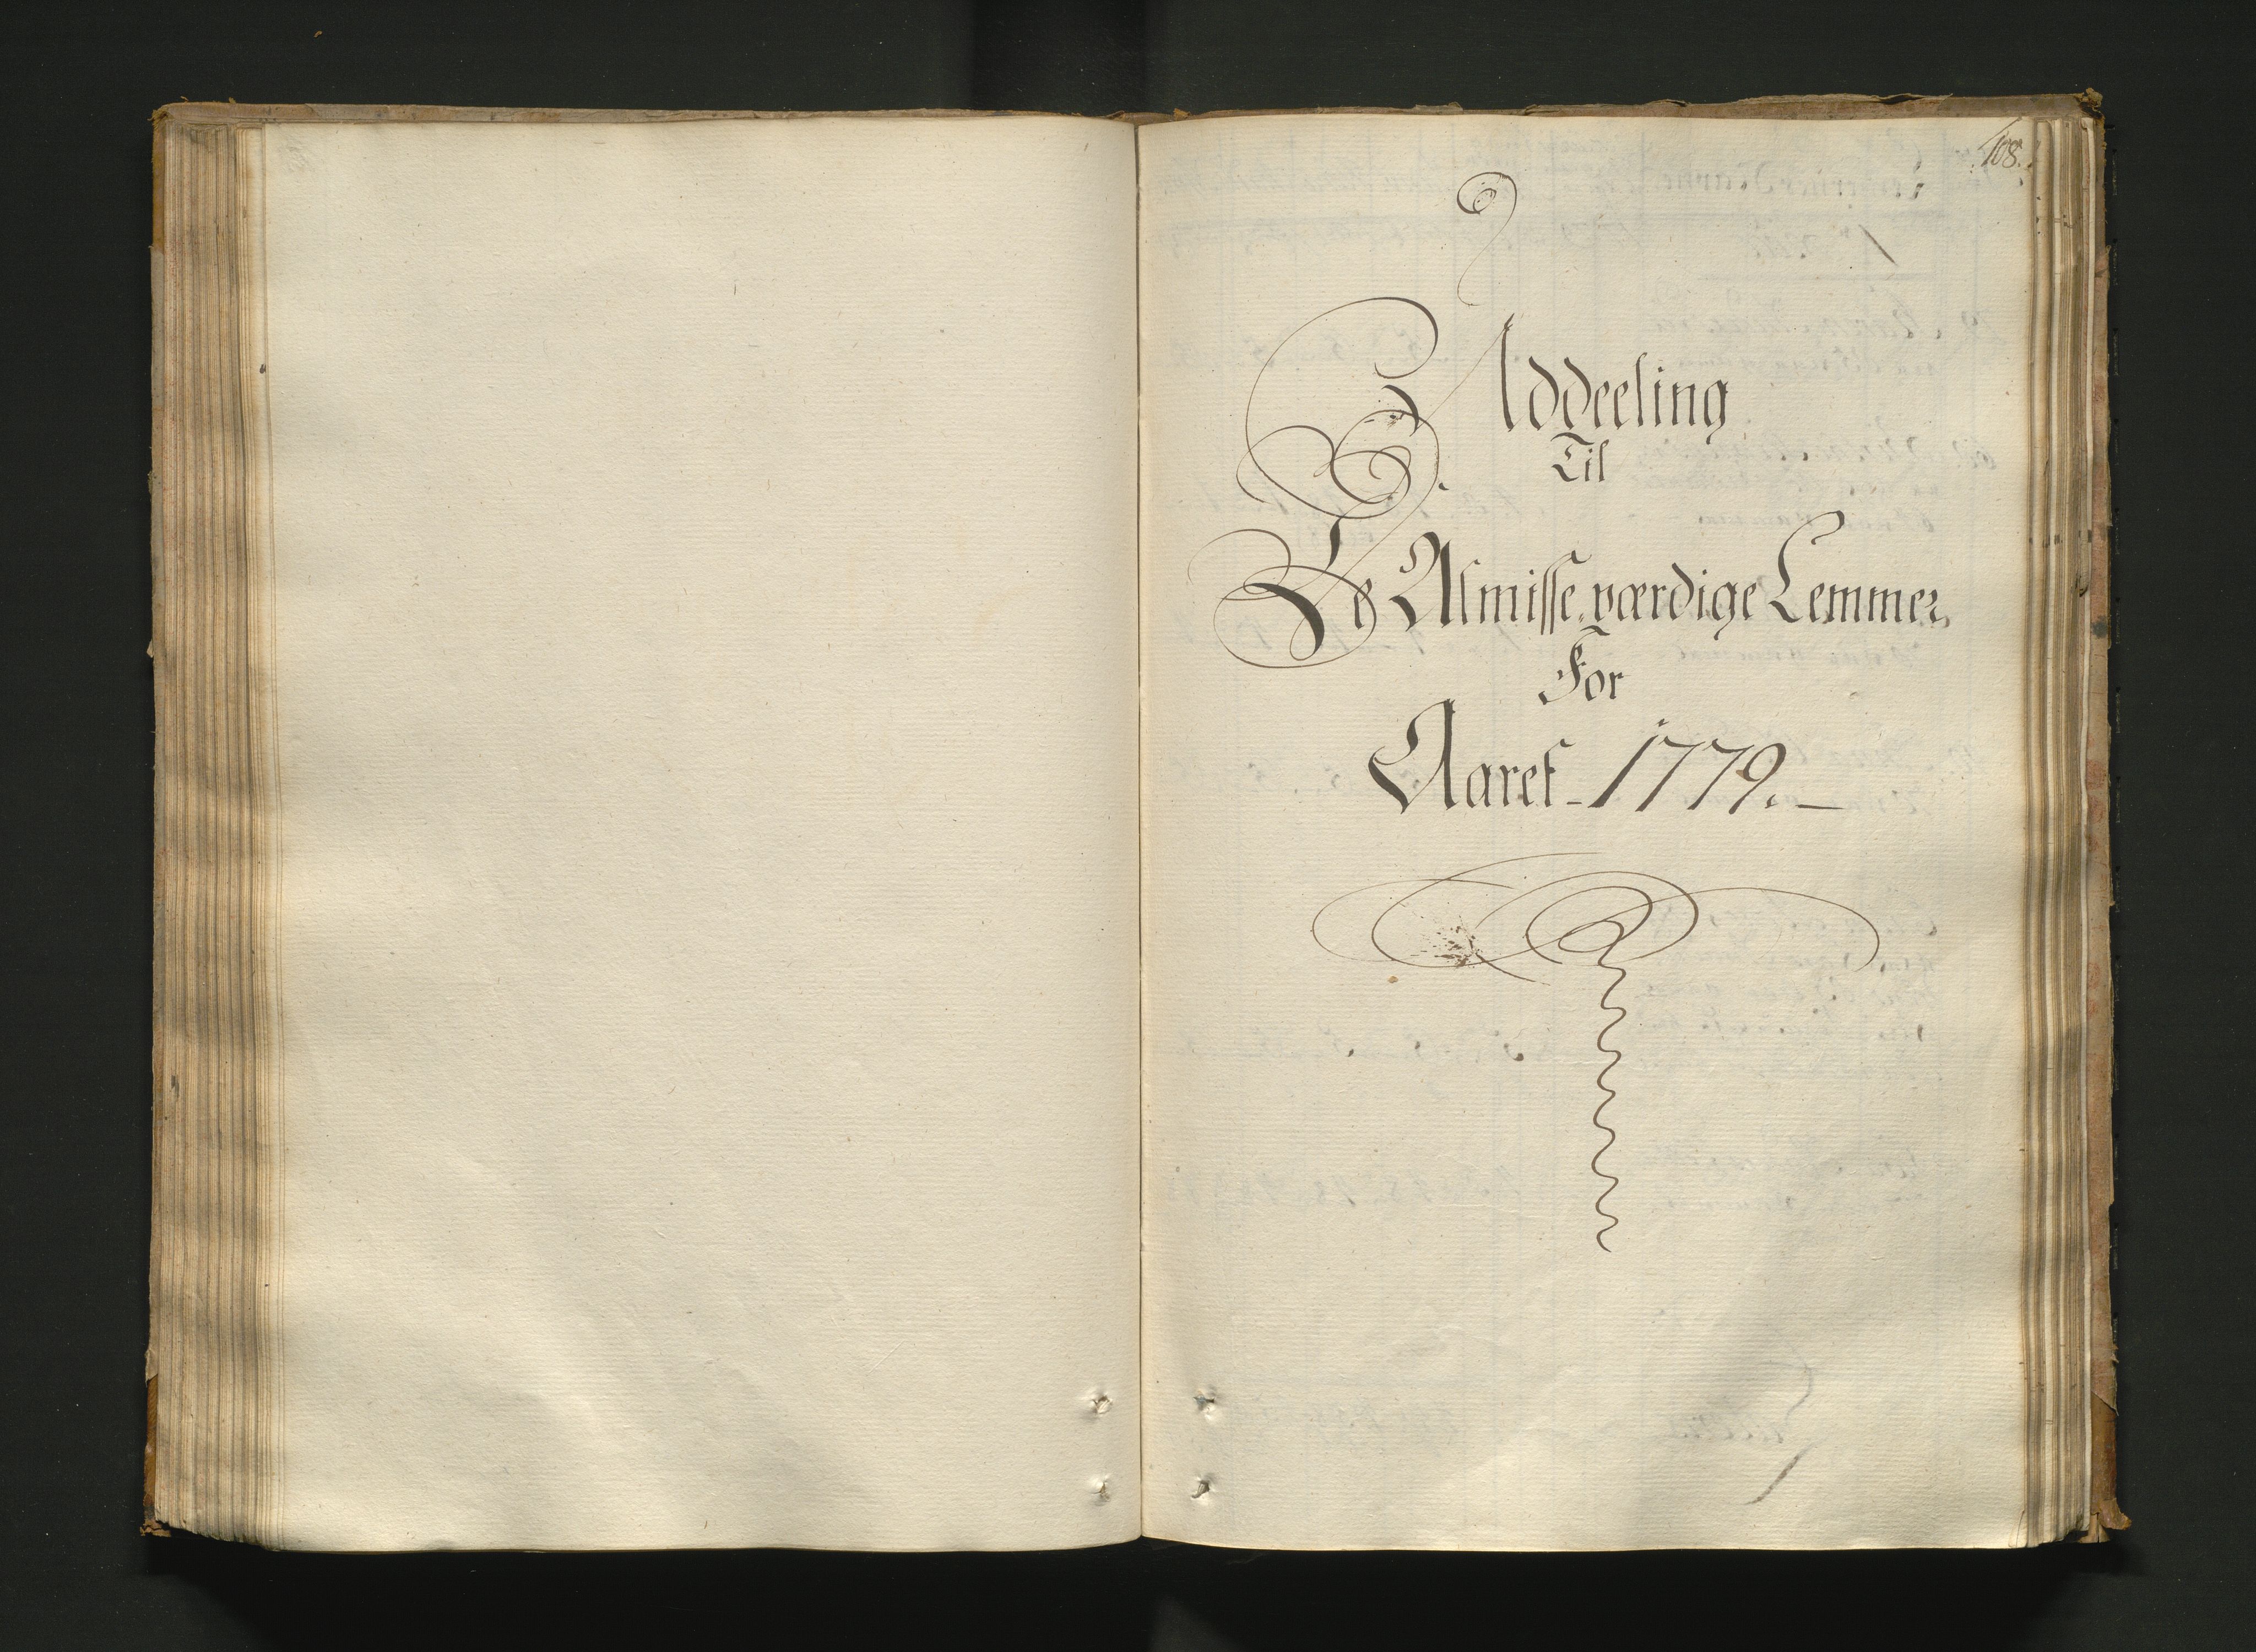 108.
Uddeeling
Til
De Almisse værdige Lemmer
For
Aaret 1779.